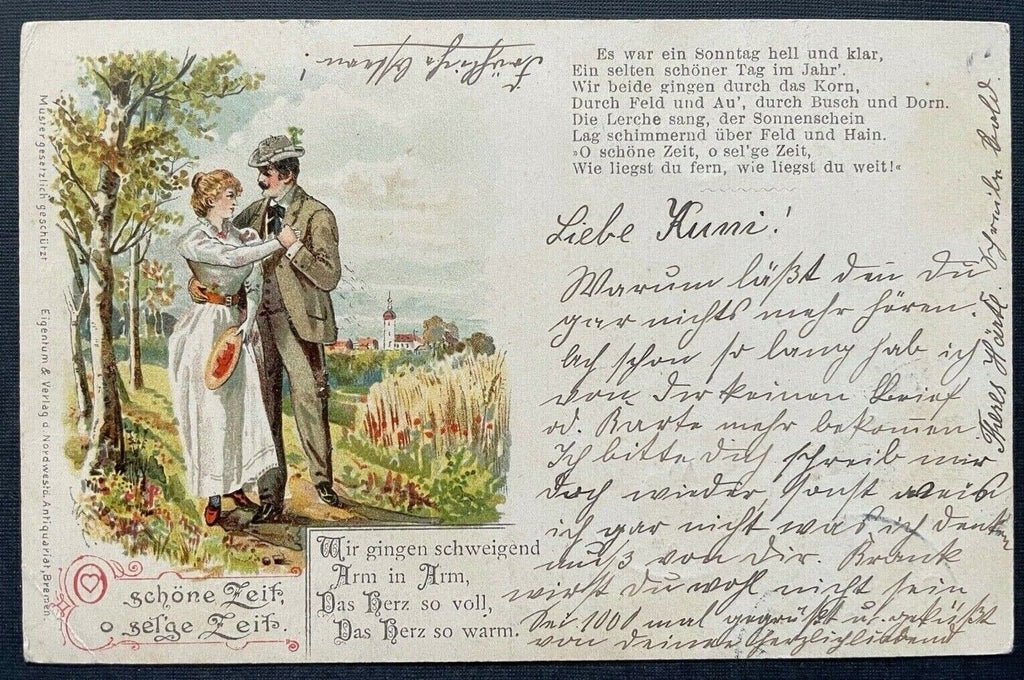 Fröhliche Ostern!
Es war ein Sonntag hell und klar,
Ein selten schöner Tag im Jahr'.
Wir beide gingen durch das Korn,
Durch Feld und Au', durch Busch und Dorn.
Die Lerche sang, der Sonnenschein
Lag schimmernd über Feld und Hain.
»O schöne Zeit, o sel'ge Zeit,
Wie liegst du fern, wie liegst du weit!«
Liebe Kuni!
Warum läßt den du
gar nichts mehr hören?
Ach schon so lang hab ich
von Dir keinen Brief
od. Karte mehr bekommen
Ich bitte Dich schreib mir
doch wieder, sonst weis
ich gar nicht was ich denken
muß von Dir. Krank
wirst Du wohl nicht sein
Sei 1000 mal gegrüßt u. geküßt
von deiner Herzlichliebend
Theres Härtl. Schreibe bald.
Wir gingen schweigend
Arm in Arm,
Das Herz so voll,
Das Herz so warm.
O schöne Zeit,
o sel'ge Zeit.
Mustergesetzlich geschützt
Eigentum & Verlag d. Nordwestd. Antiquariat, Bremen.